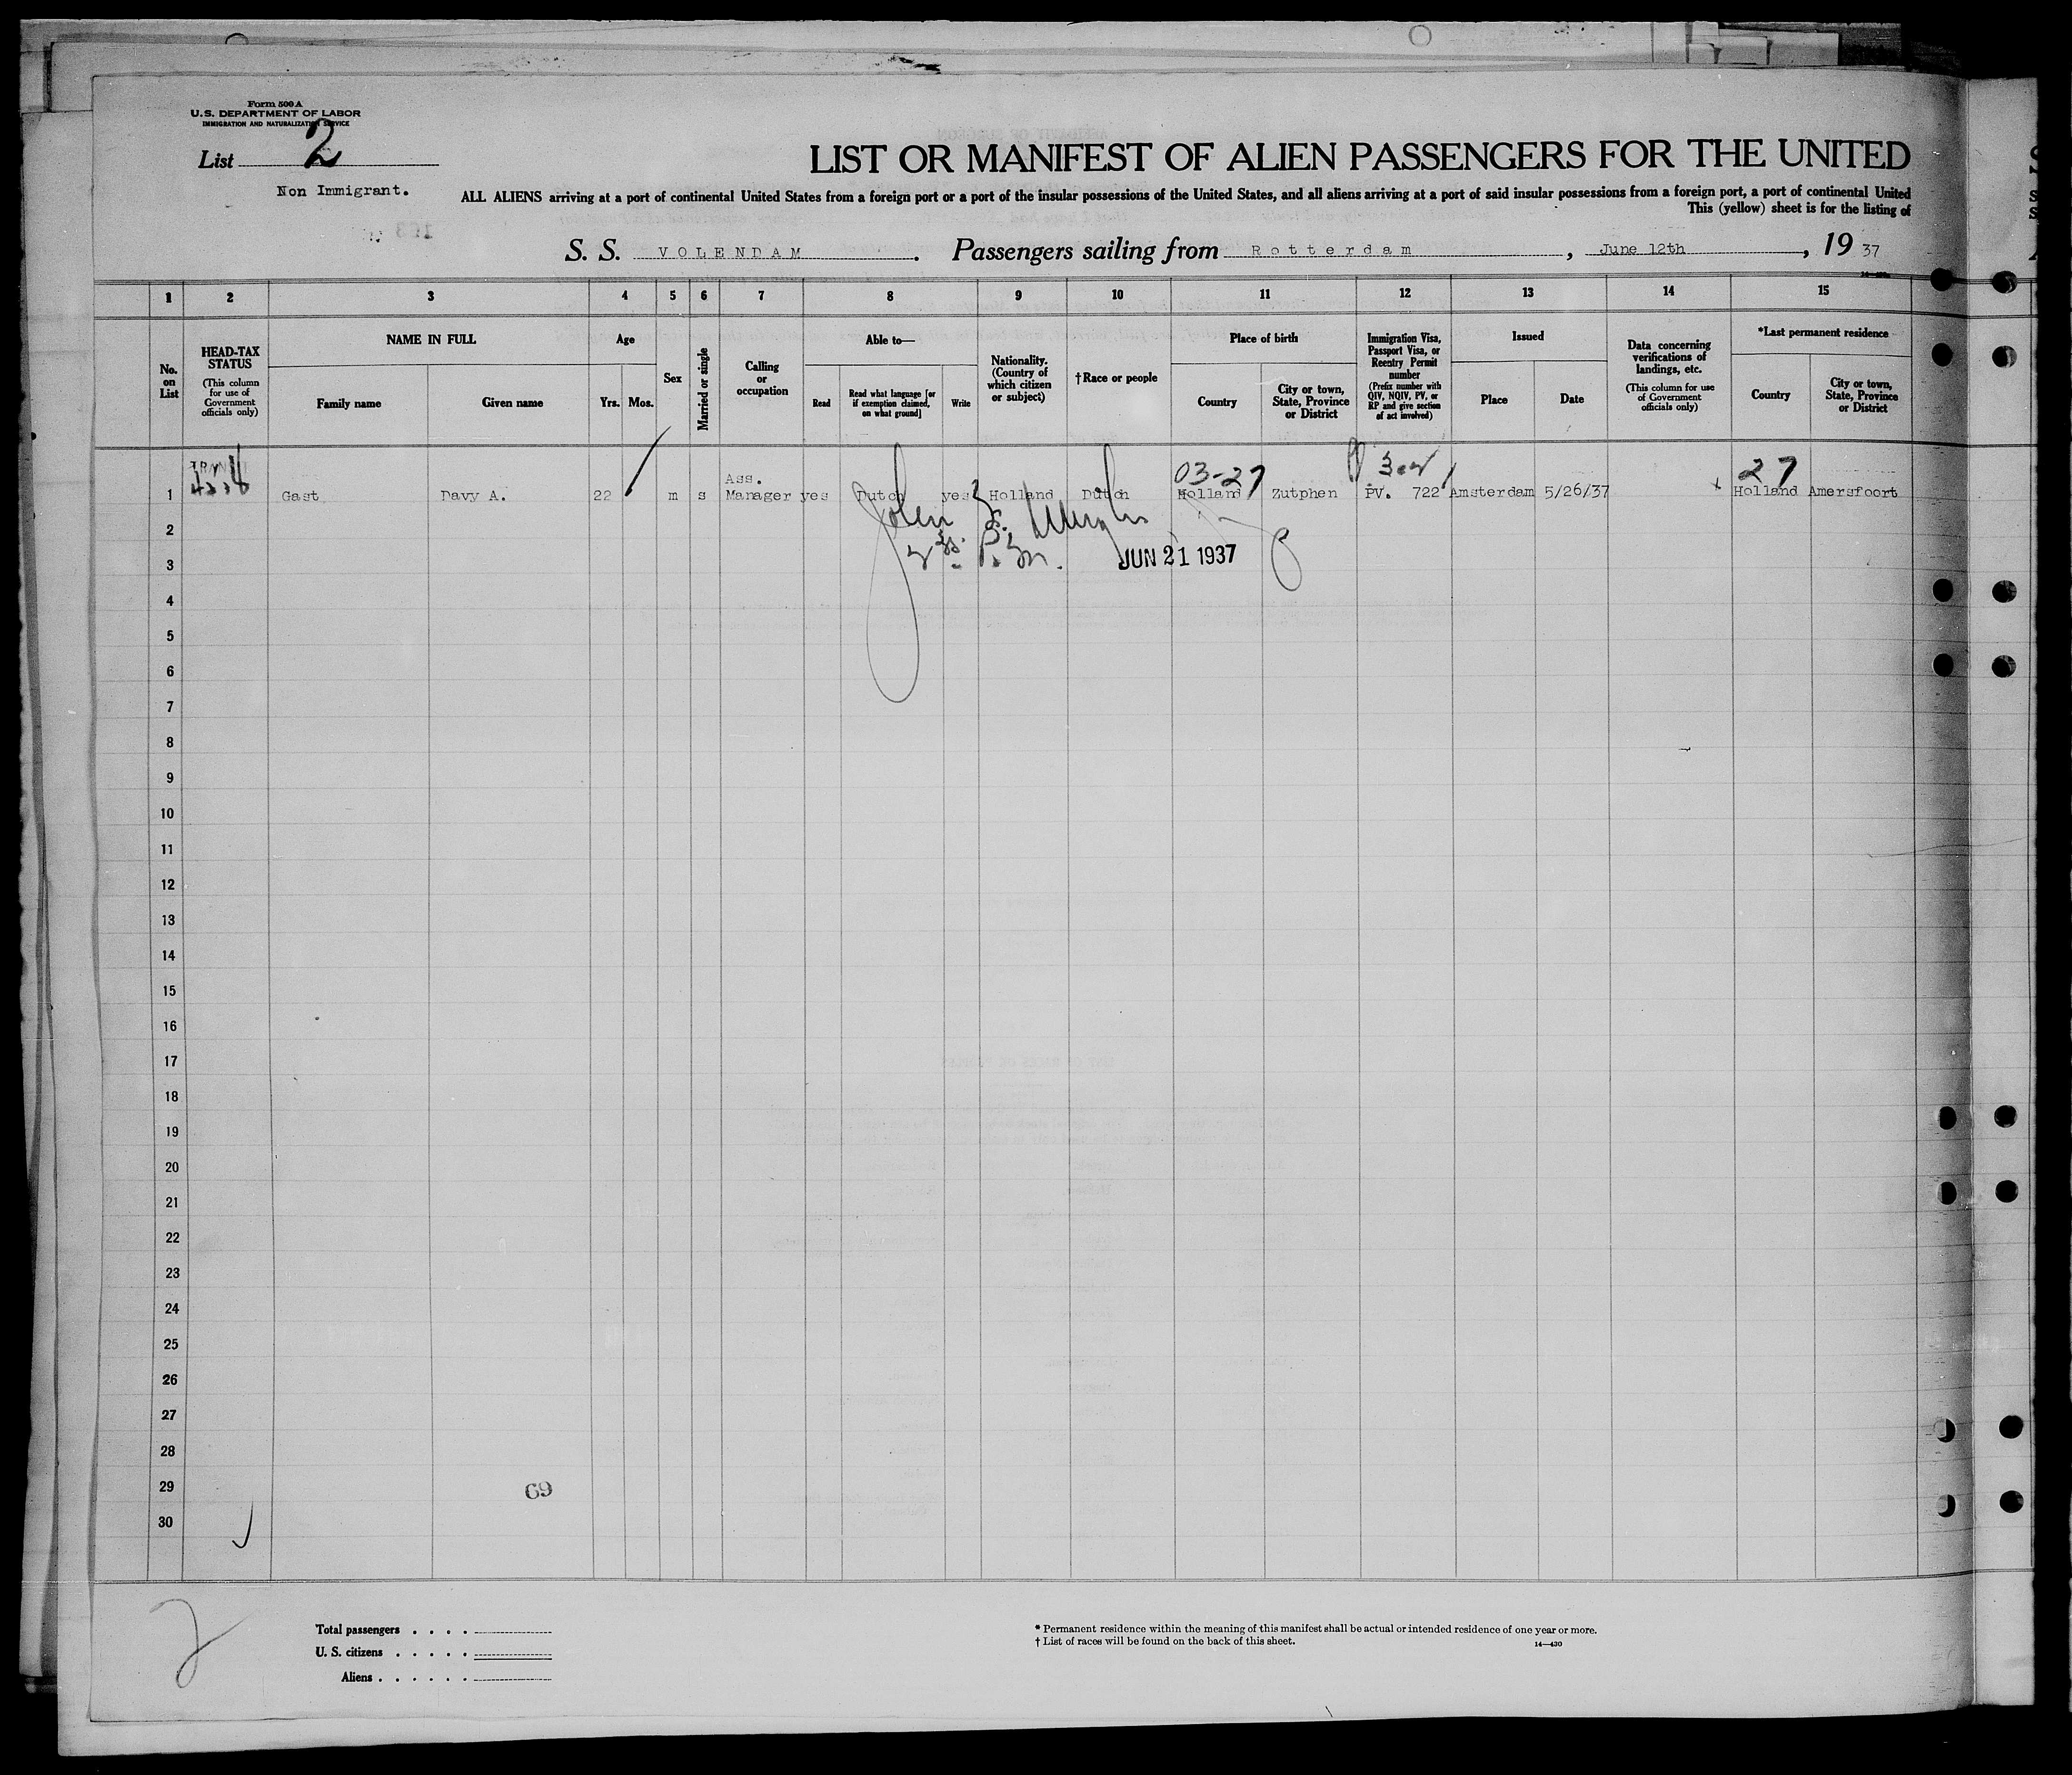 Form 500 A
U.S. DEPARTMENT OF LABOR
IMMIGRATION AND NATURALIZATION SERVICE
List 2
Non Immigrant.
LIST OR MANIFEST OF ALIEN PASSENGERS FOR THE UNITED
ALL ALIENS arriving at a port of continental United States from a foreign port or a port of the insular possessions of the United States, and all aliens arriving at a port of said insular possessions from a foreign port, a port of continental United
This (yellow) sheet is for the listing of
S. S. VOLENDAM. Passengers sailing from Rotterdam, June 12th, 19 37
1 2 3 4 5 6 7 8 9 10 11 12 13 14 15
No. on List
HEAD-TAX STATUS
(This column for use of Government officials only)
NAME IN FULL
Family name
Given name
Age
Yrs. Mos.
Sex
Married or single
Calling or occupation
Able to—
Read
Read what language [or if exemption claimed, on what ground]
Write
Nationality. (Country of which citizen or subject)
†Race or people
Place of birth
Country
City or town, State, Province or District
Immigration Visa, Passport Visa, or Reentry Permit number
(Prefix number with QIV, NQIV, PV, or RP and give section of act involved)
Issued
Place
Date
Data concerning verifications of landings, etc.
(This column for use of Government officials only)
*Last permanent residence
Country
City or town, State, Province or District
03-27
27
Ass.
1 Gast Davy A. 22 m s Manager yes Dutch yes Holland Dutch Holland Zutphen PV. 722 Amsterdam 5/26/37 Holland Amersfoort
John
2
JUN 21 1937
3
4
5
6
7
8
9
10
11
12
13
14
15
16
17
18
19
20
21
22
23
24
25
26
27
28
29
69
30
2
Total passengers
U. S. citizens
Aliens
* Permanent residence within the meaning of this manifest shall be actual or intended residence of one year or more.
† List of races will be found on the back of this sheet.
14—430